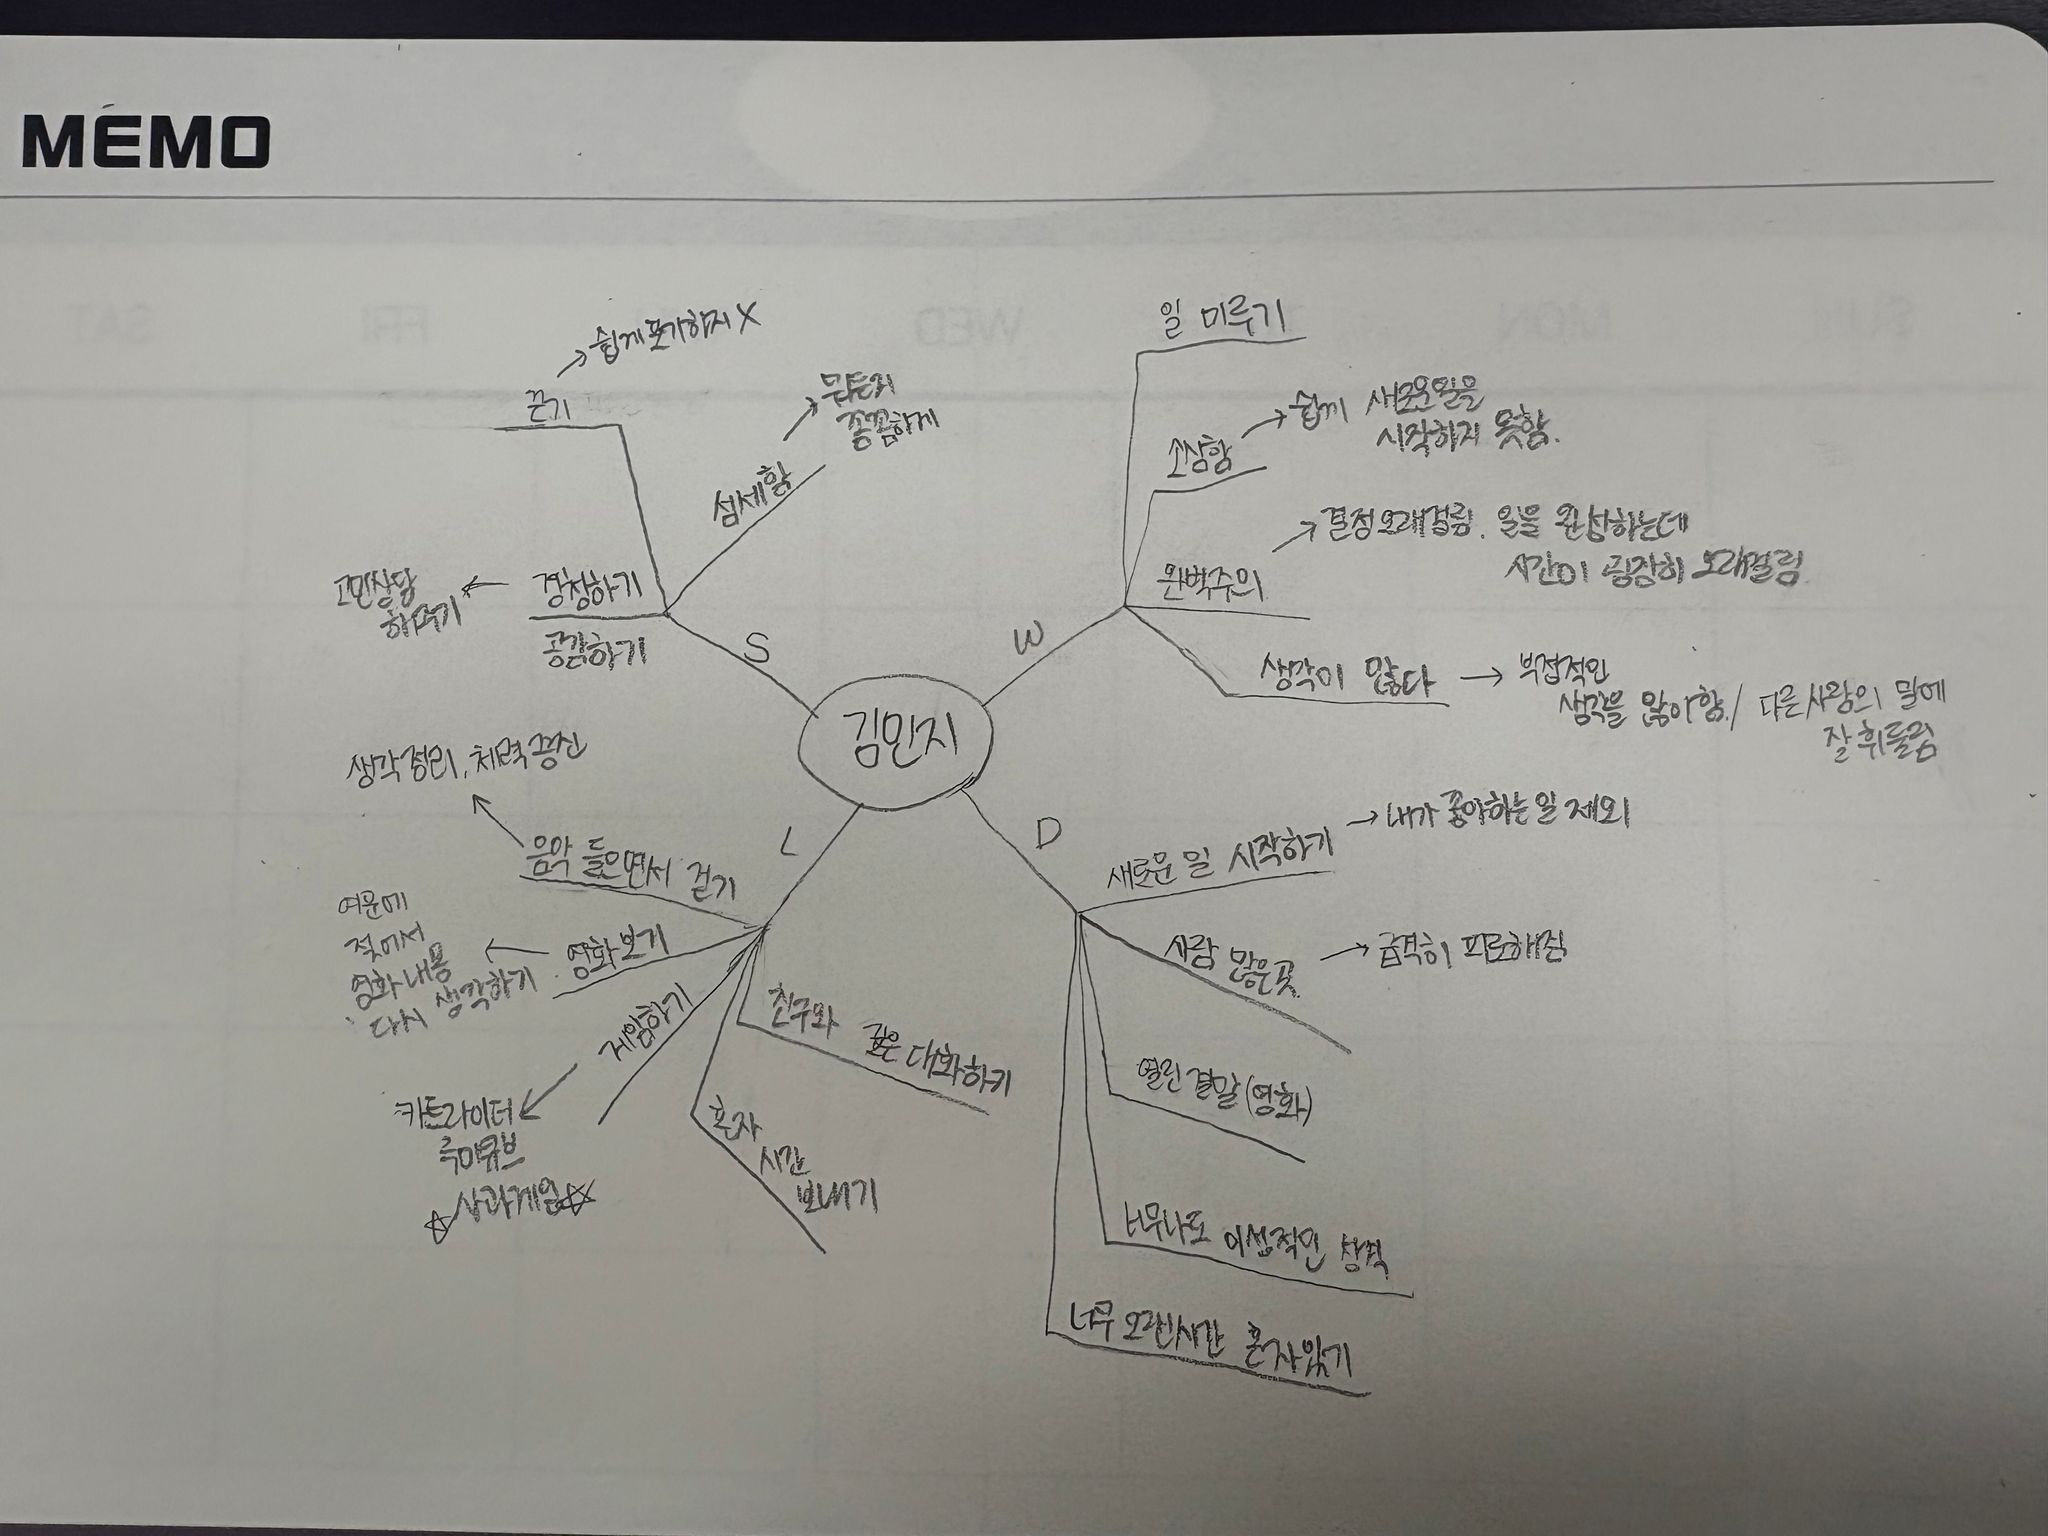 MEMO
끈기
→ 쉽게 포기하지 X
섬세함
→ 뭐든지
꼼꼼하게
경청하기
공감하기
← 고민상담
S
W
일 미루기
소심함
→ 쉽게 새로운일을
시작하지 못함.
완벽주의
→ 결정오래걸림. 일을 완성하는데
시간이 굉장히 오래걸림.
생각이 많다
→ 부정적인
생각을 많이함. / 다른사람의 말에
잘 휘둘림
김민지
L
음악 들으면서 걷기
생각정리, 체력증진
영화보기
← 여운에
젖어서
영화내용
다시 생각하기
게임하기
카트라이더
루미큐브
☆사과게임☆
혼자
시간
보내기
친구와 깊은 대화하기
D
새로운 일 시작하기
→ 내가 좋아하는 일 제외
사람 많은곳
→ 급격히 피로해짐
열린결말(영화)
너무나도 이성적인 성격
너무 오랜시간 혼자있기